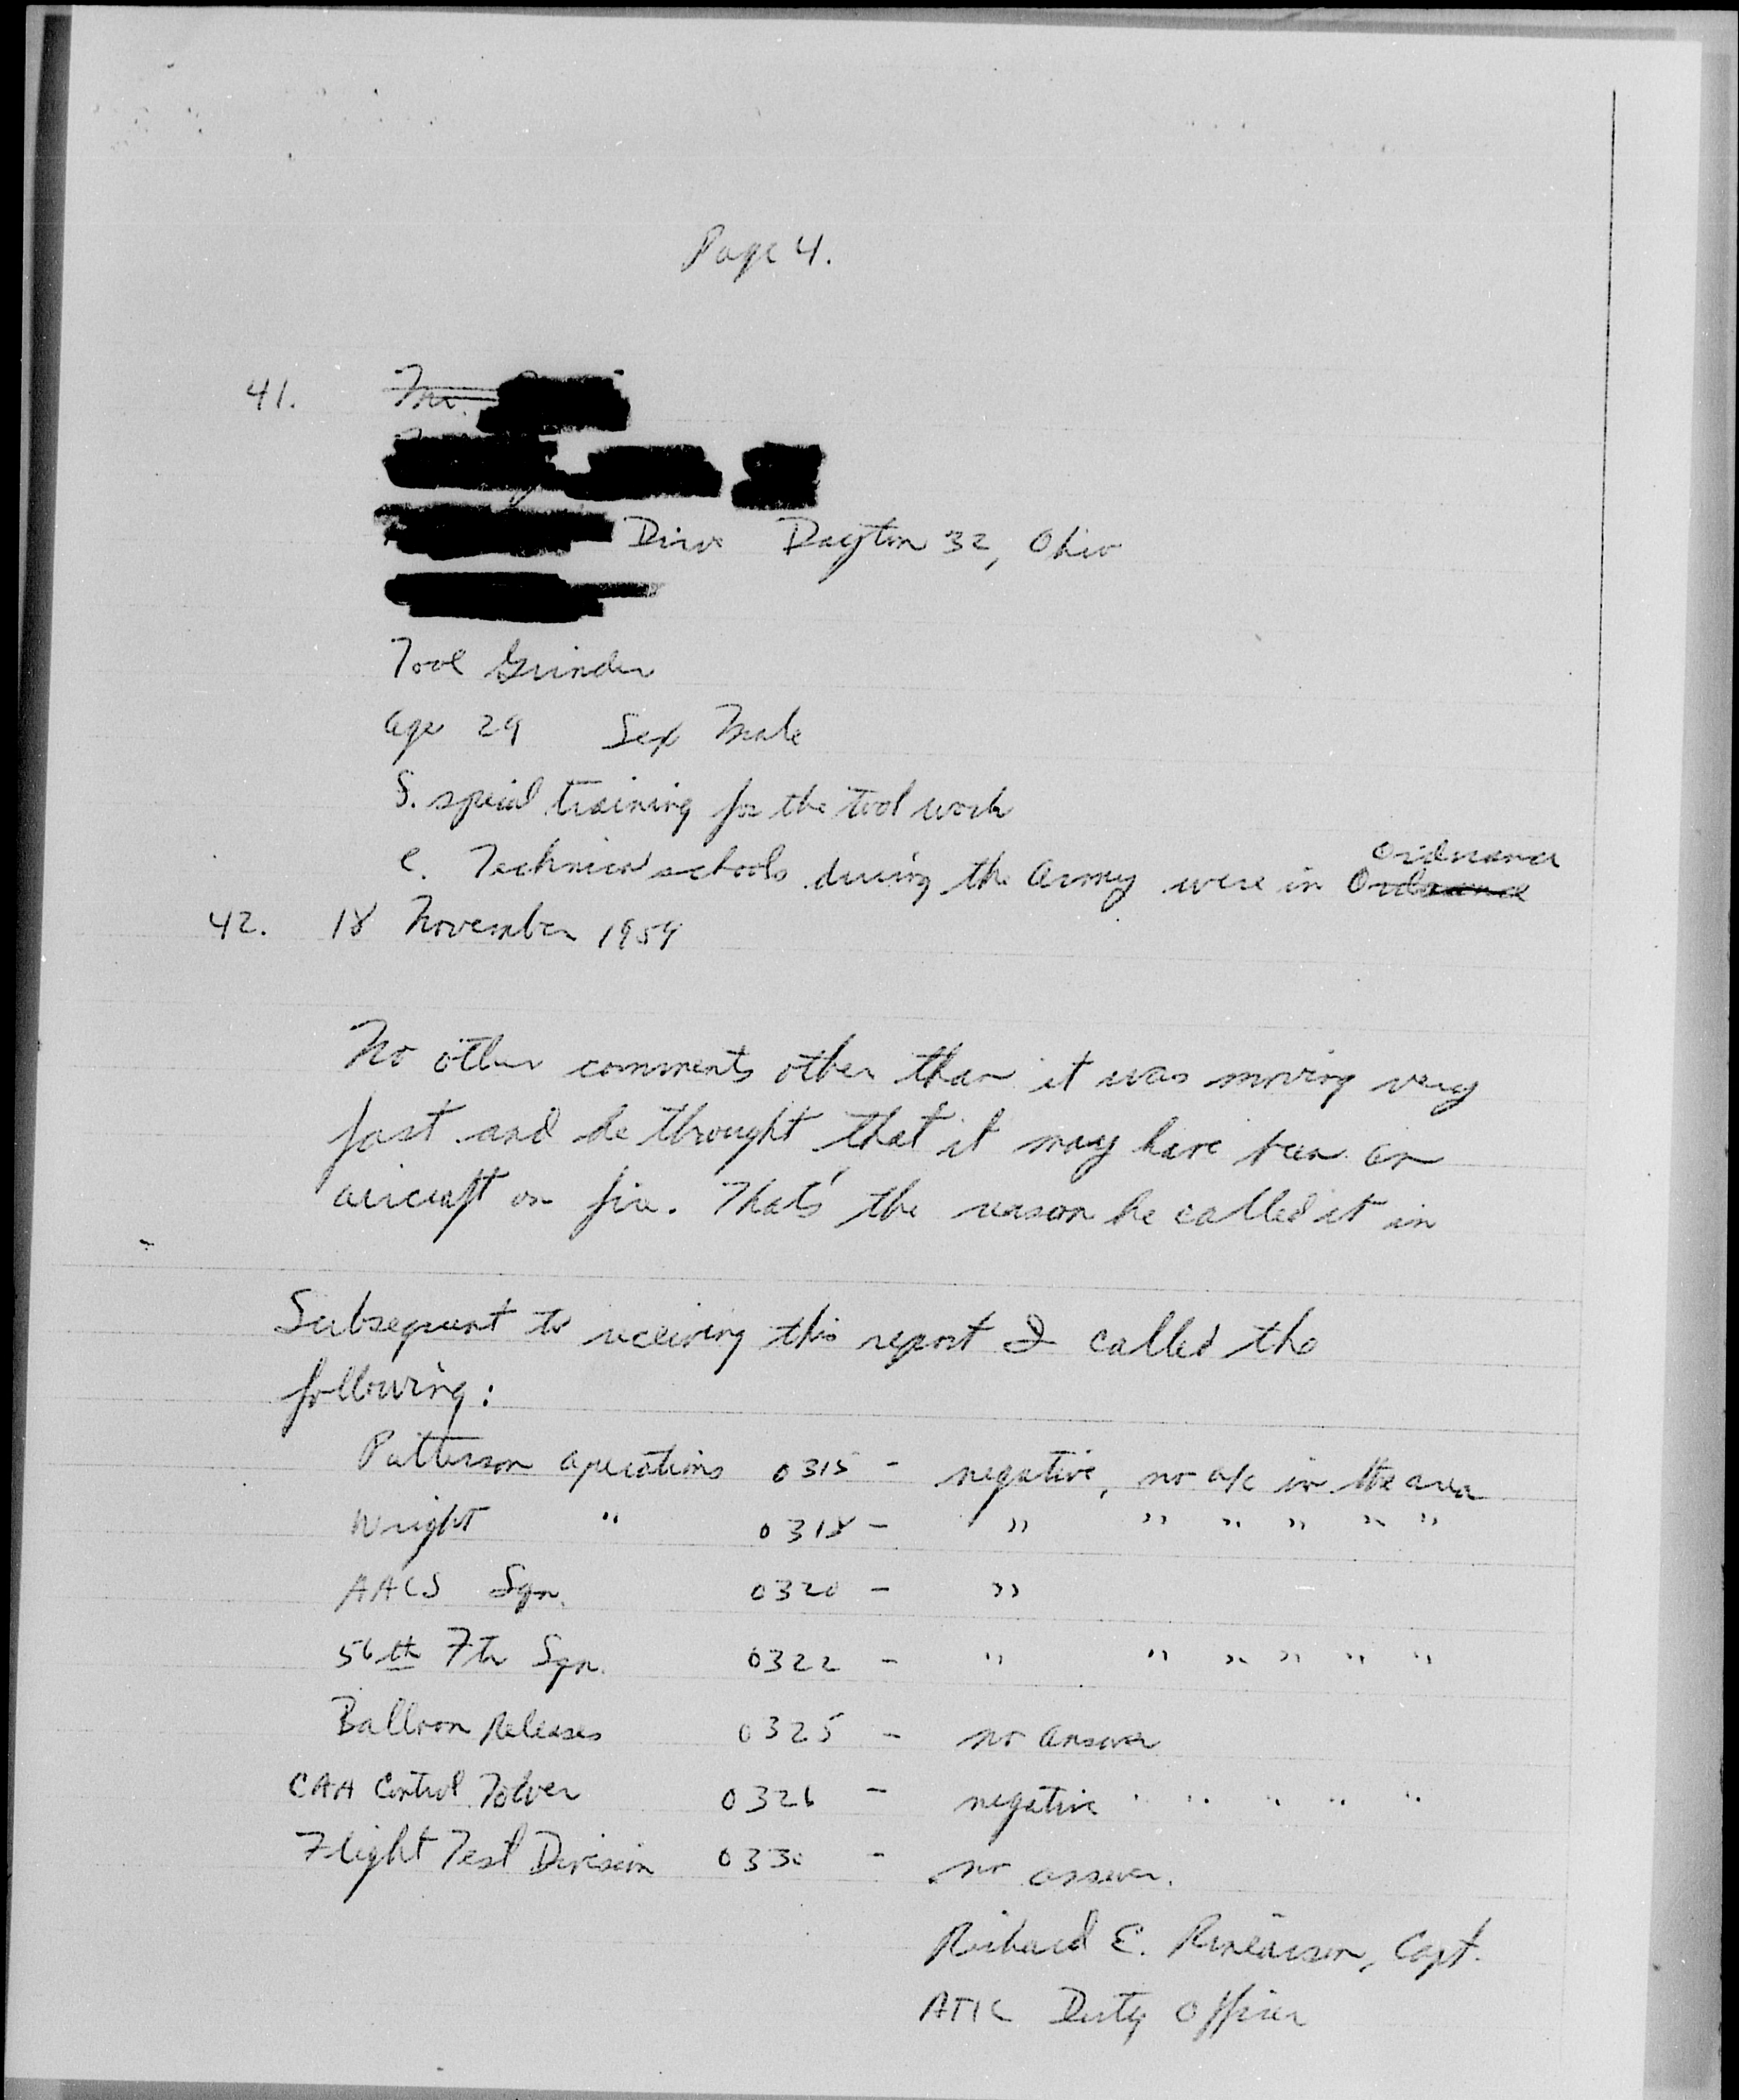 Page 4.
41. Mr.
Drive Dayton 32, Ohio
Tool Grinder
Age 29 Sex Male
S. special training for the tool work
e. Technical schools during the Army were in Ordnance
42. 18 November 1959
No other comments other than it was moving very
fast and he thought that it may have been an
aircraft on fire. That's the reason he called it in
Subsequent to receiving this report I called the
following:
Patterson Operations 0315 - negative, no a/c in the area
Wright " 0318 - " " " " " "
AACS Sqn. 0320 - "
56th Ftr Sqn. 0322 - " " " " " "
Balloon Releases 0325 - no answer
CAA Control Tower 0326 - negative " " " " "
Flight Test Division 0330 - no answer.
Richard E. Capt.
ATIC Duty Officer